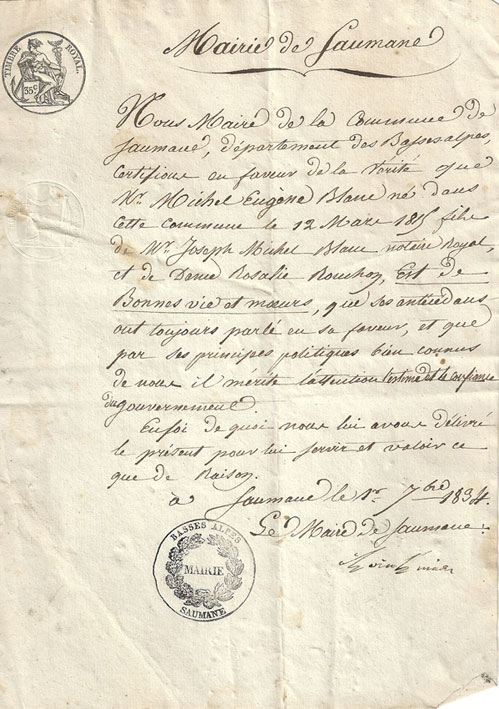 TIMBRE ROYAL.
35c
Mairie de Saumane
Nous Maire de la Commune de
Saumane, département des Basses alpes,
Certifions en faveur de la Vérité que
Mr. Michel Eugène Blanc né dans
Cette Commune le 12 Mars 1815 fils
de Mr. Joseph Michel Blanc notaire Royal,
et de Dame Rosalie Bouchon, Est de
Bonnes vie et mœurs, que ses antécédans
ont toujours parlé en sa faveur, et que
par ses principes politiques bien connus
de nous il mérite l'attention l'estime et la confiance
du gouvernement.
En foi de quoi nous lui avons délivré
le présent pour lui servir et valoir ce
que de Raison.
à Saumane le 1er 7bre 1834.
Le Maire de Saumane.
BASSES ALPES
MAIRIE
SAUMANE